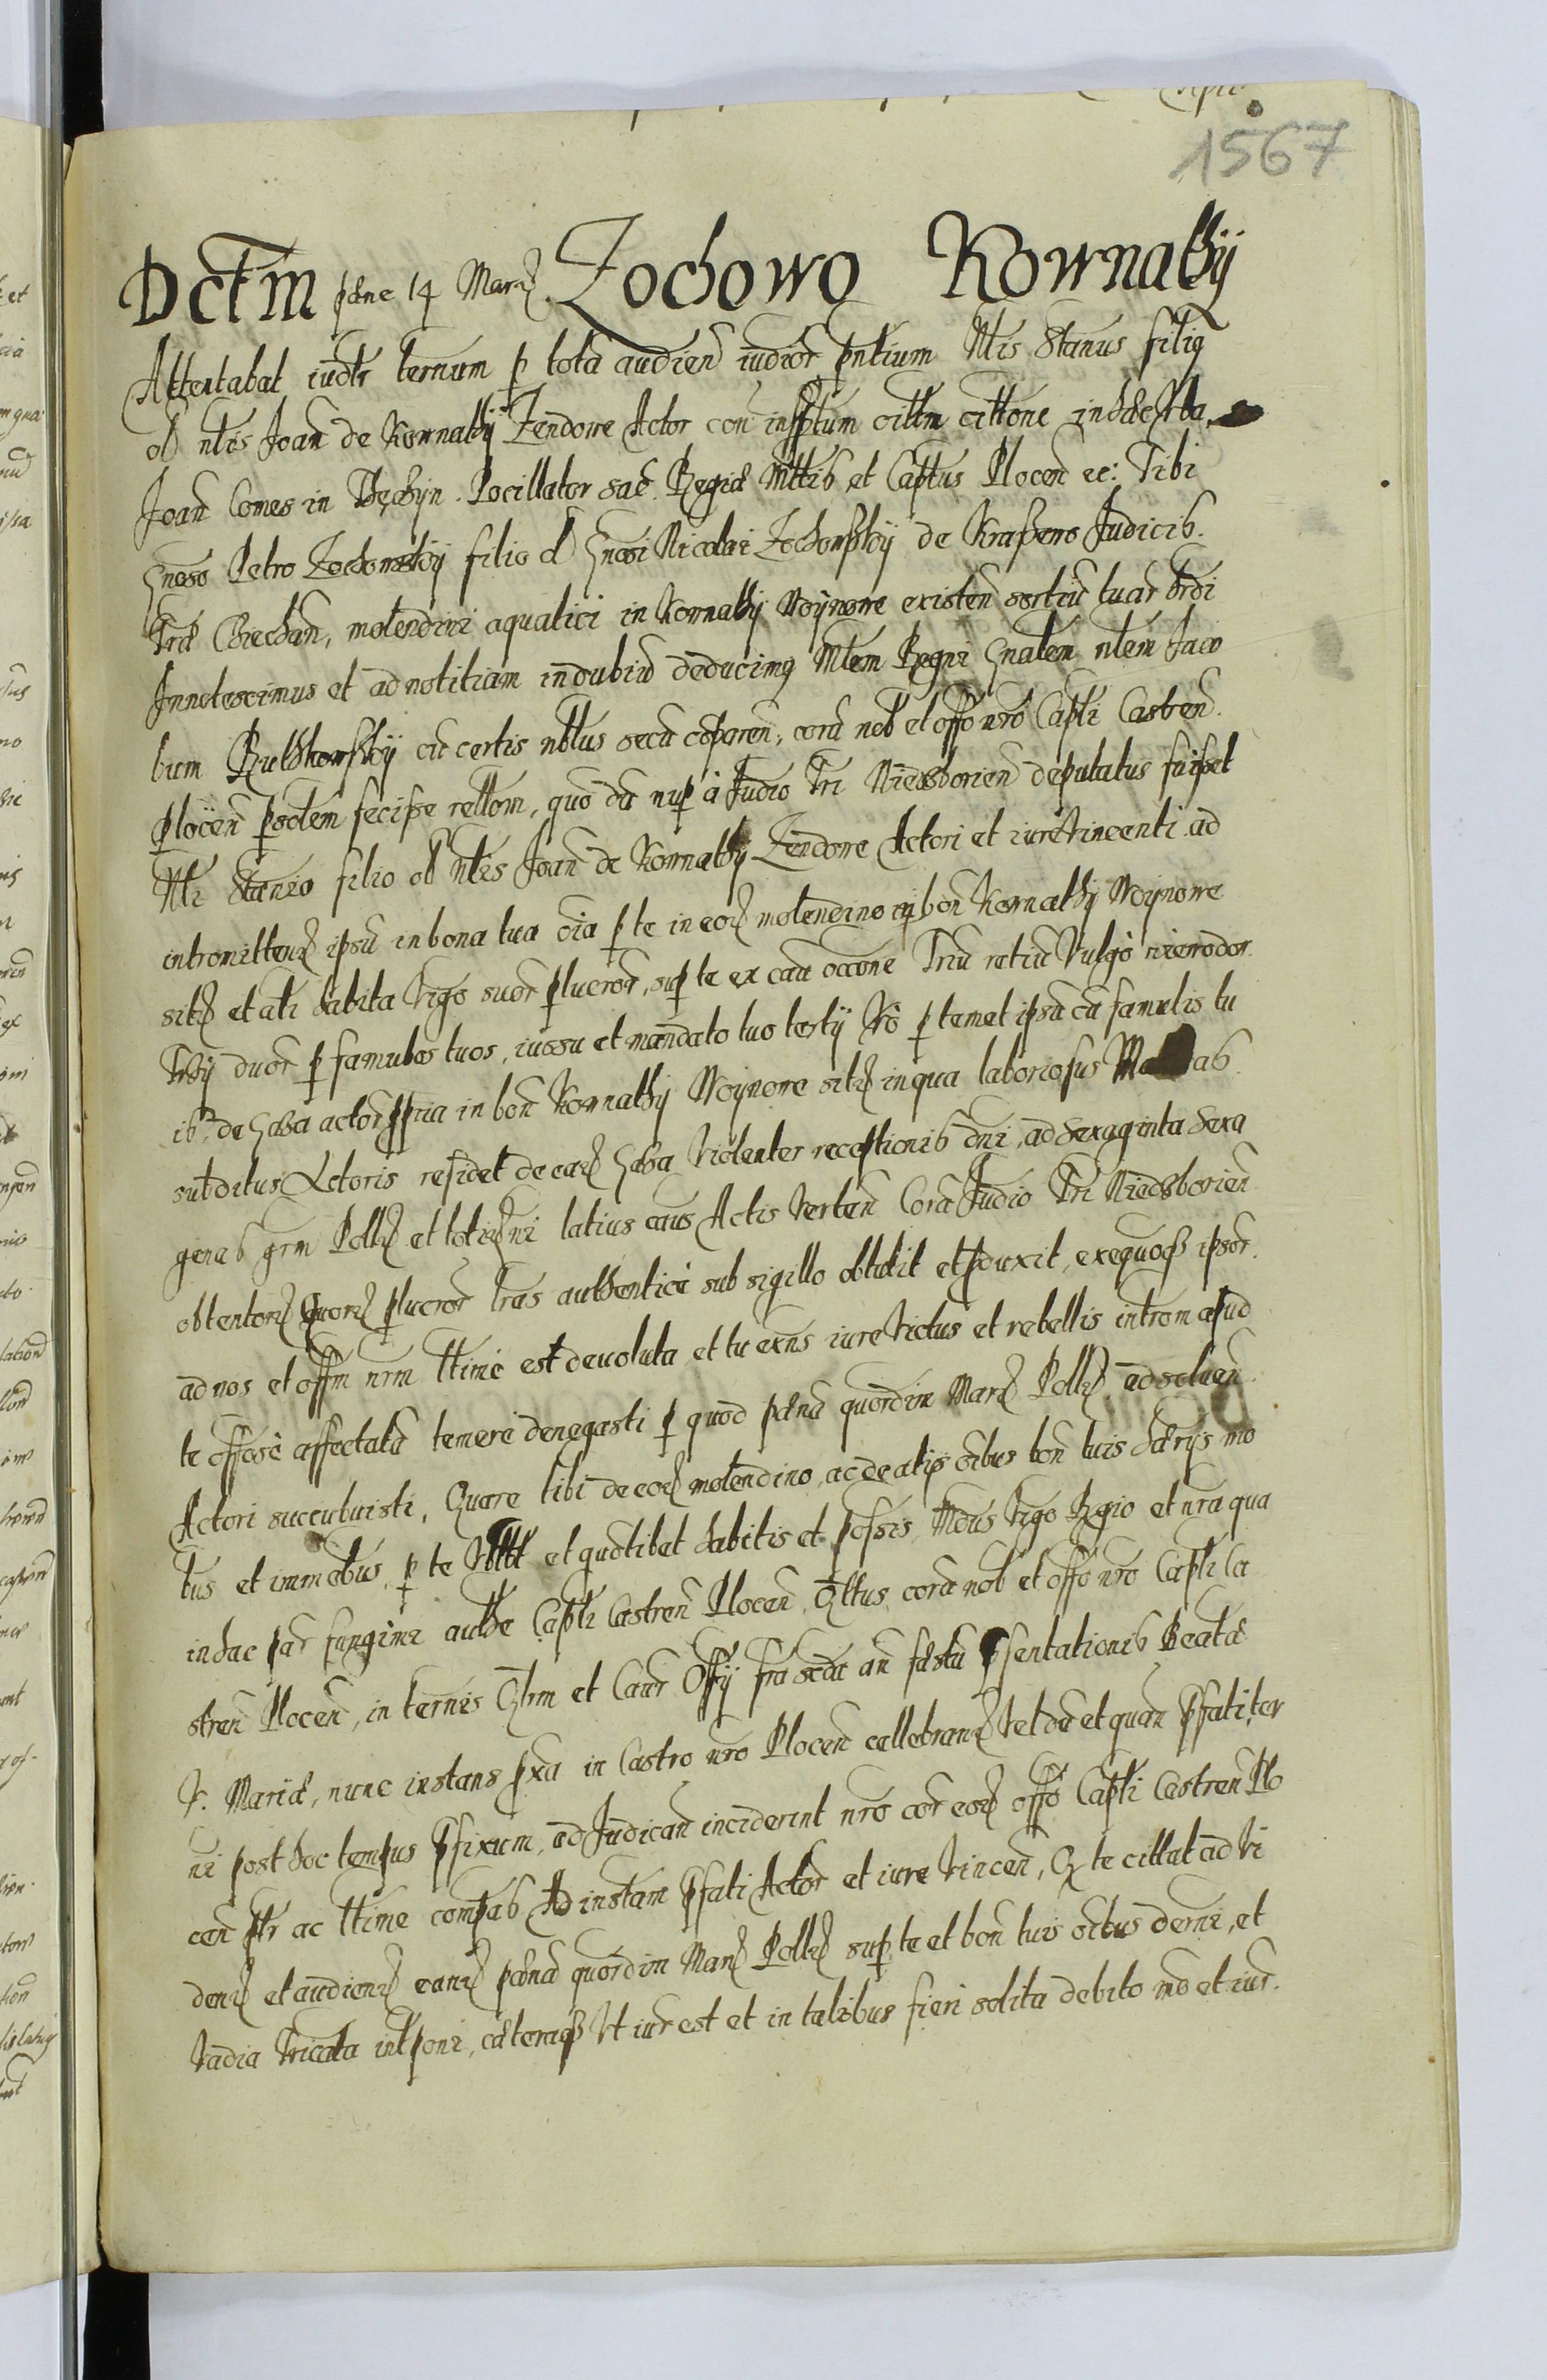 1567
Dctm pdne 14 Mar Zochowo Kownatkÿ
Attentabat iudtr ternum p tota audien iudior pntium Nlis Stanus filiq
ol nlis Joan de Kownatkÿ Zendowe Actor con insptum cittm cittone in hæc Vba,
Joan Comes in Thęchÿn Pocillator sac Regiæ Mttis et Capttus Plocen ec: Tibi
Gnoso Petro Zochowskÿ filio ol Gnosi Nicolai Zochowskÿ de Kraszewo Judicis
Træ Ciechan, molendini aquatici in Kownatkÿ Woÿnowe existen sortiu tuar hrdi
Innotescimus et ad notitiam indubiu deducimq Mtem Regni Gnalem nlem Jaco
bum Rutkowskÿ cu certis nblus secu coparen, cora nob et offo nro Capli Castren
plocen psdtem fecisse rellom, quo du nup à Judio Tri Niedzborien deputatus fuisset
Nli Stanio filio ol Nlis Joan de Kownatkÿ Zendowe Actori et iure Vincenti ad
intromitten ipsu in bona tua oia p te in eo molendino in bon Kownatkÿ Woÿnowe
sit et ati habita Vigo suor plucror, sup te ex cau occone Triu retiu Vulgò niewodor
Vhÿ duor p famulos tuos, iussu et mandato tuo tertÿ Vo p temet ipsu cu famulis tu
is, de Gaba actor ppria in bon Kownatkÿ Woÿnowe sit in qua laboriosus
subditus Actoris residet de ea Gaba Violenter receptionis dni, ad sexaginta sexa
genas grm Poll et toti ni latius caus Actis Verten Cora Judio Tri Niedzborien
obtentor Quor plucror lras authenticè sub sigillo obtulit et pduxit, exequoq ipsor
ad nos et offm nrm ttimè est devoluta, et tu exns iure Victus et rebellis introm apud
te offosè affectatu temerè denegasti p quod pæna quordim Mar Poll ad soluen
Actori succubuisti, Quare tibi de eo molendino, ac de alijs oibus bon tuis hærijs mo
bus et immobus, p te Vbtt et qudlibet habitis et possis, Mdus Vigo Regio et nra qua
in hac par fungimr authe Capli Castren Plocen, Qttus cora nob et offo nro Capli Ca
stren Plocen, in ternis Qrim et Caur Offÿ fra scda an festu psentationis Beatæ
V. Mariæ, nunc instans pxa in Castro nro Plocen cellebran Vel du et quan pfati ter
ni post hoc tempus pfixum, ad Judican inciderint nro cor eo offo Capli Castren Plo
cen ptr ac ttime compas Ad instam pfati Actor et iure Vincen, Q te cittat ad Vi
den et audien ean pæna quordim Mar Poll sup te et bon tuis oibus derni, et
Vadia Vricata intponi, cæteraq Vt iur est et in talibus fieri solita debito mo et iur.